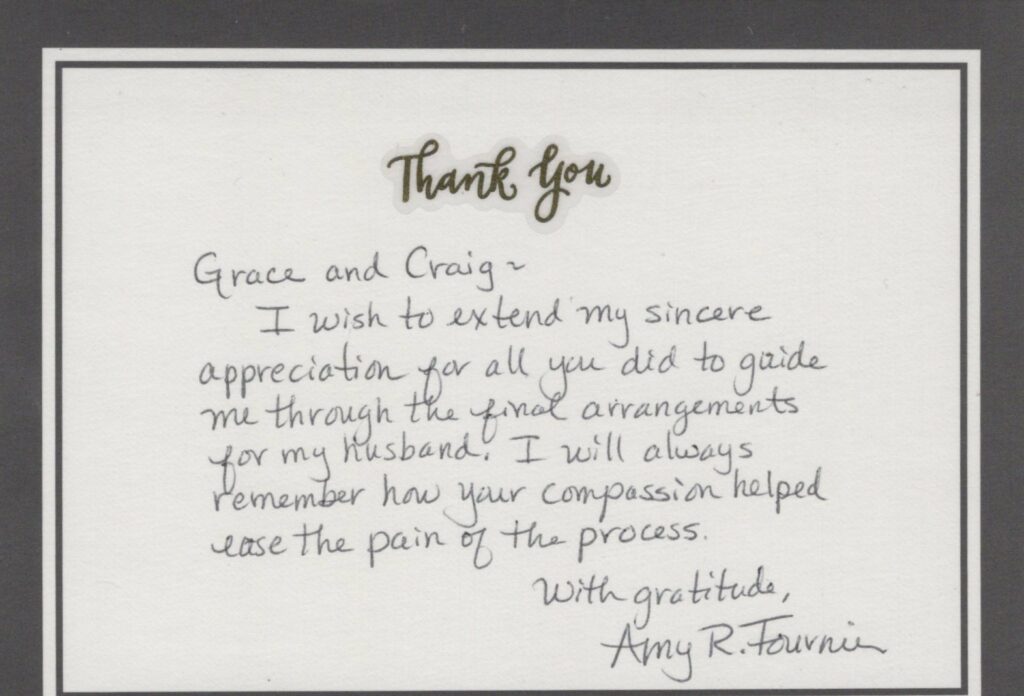 Thank You
Grace and Craig~
I wish to extend my sincere
appreciation for all you did to guide
me through the final arrangements
for my husband. I will always
remember how your compassion helped
ease the pain of the process.
With gratitude,
Amy R. Fournier